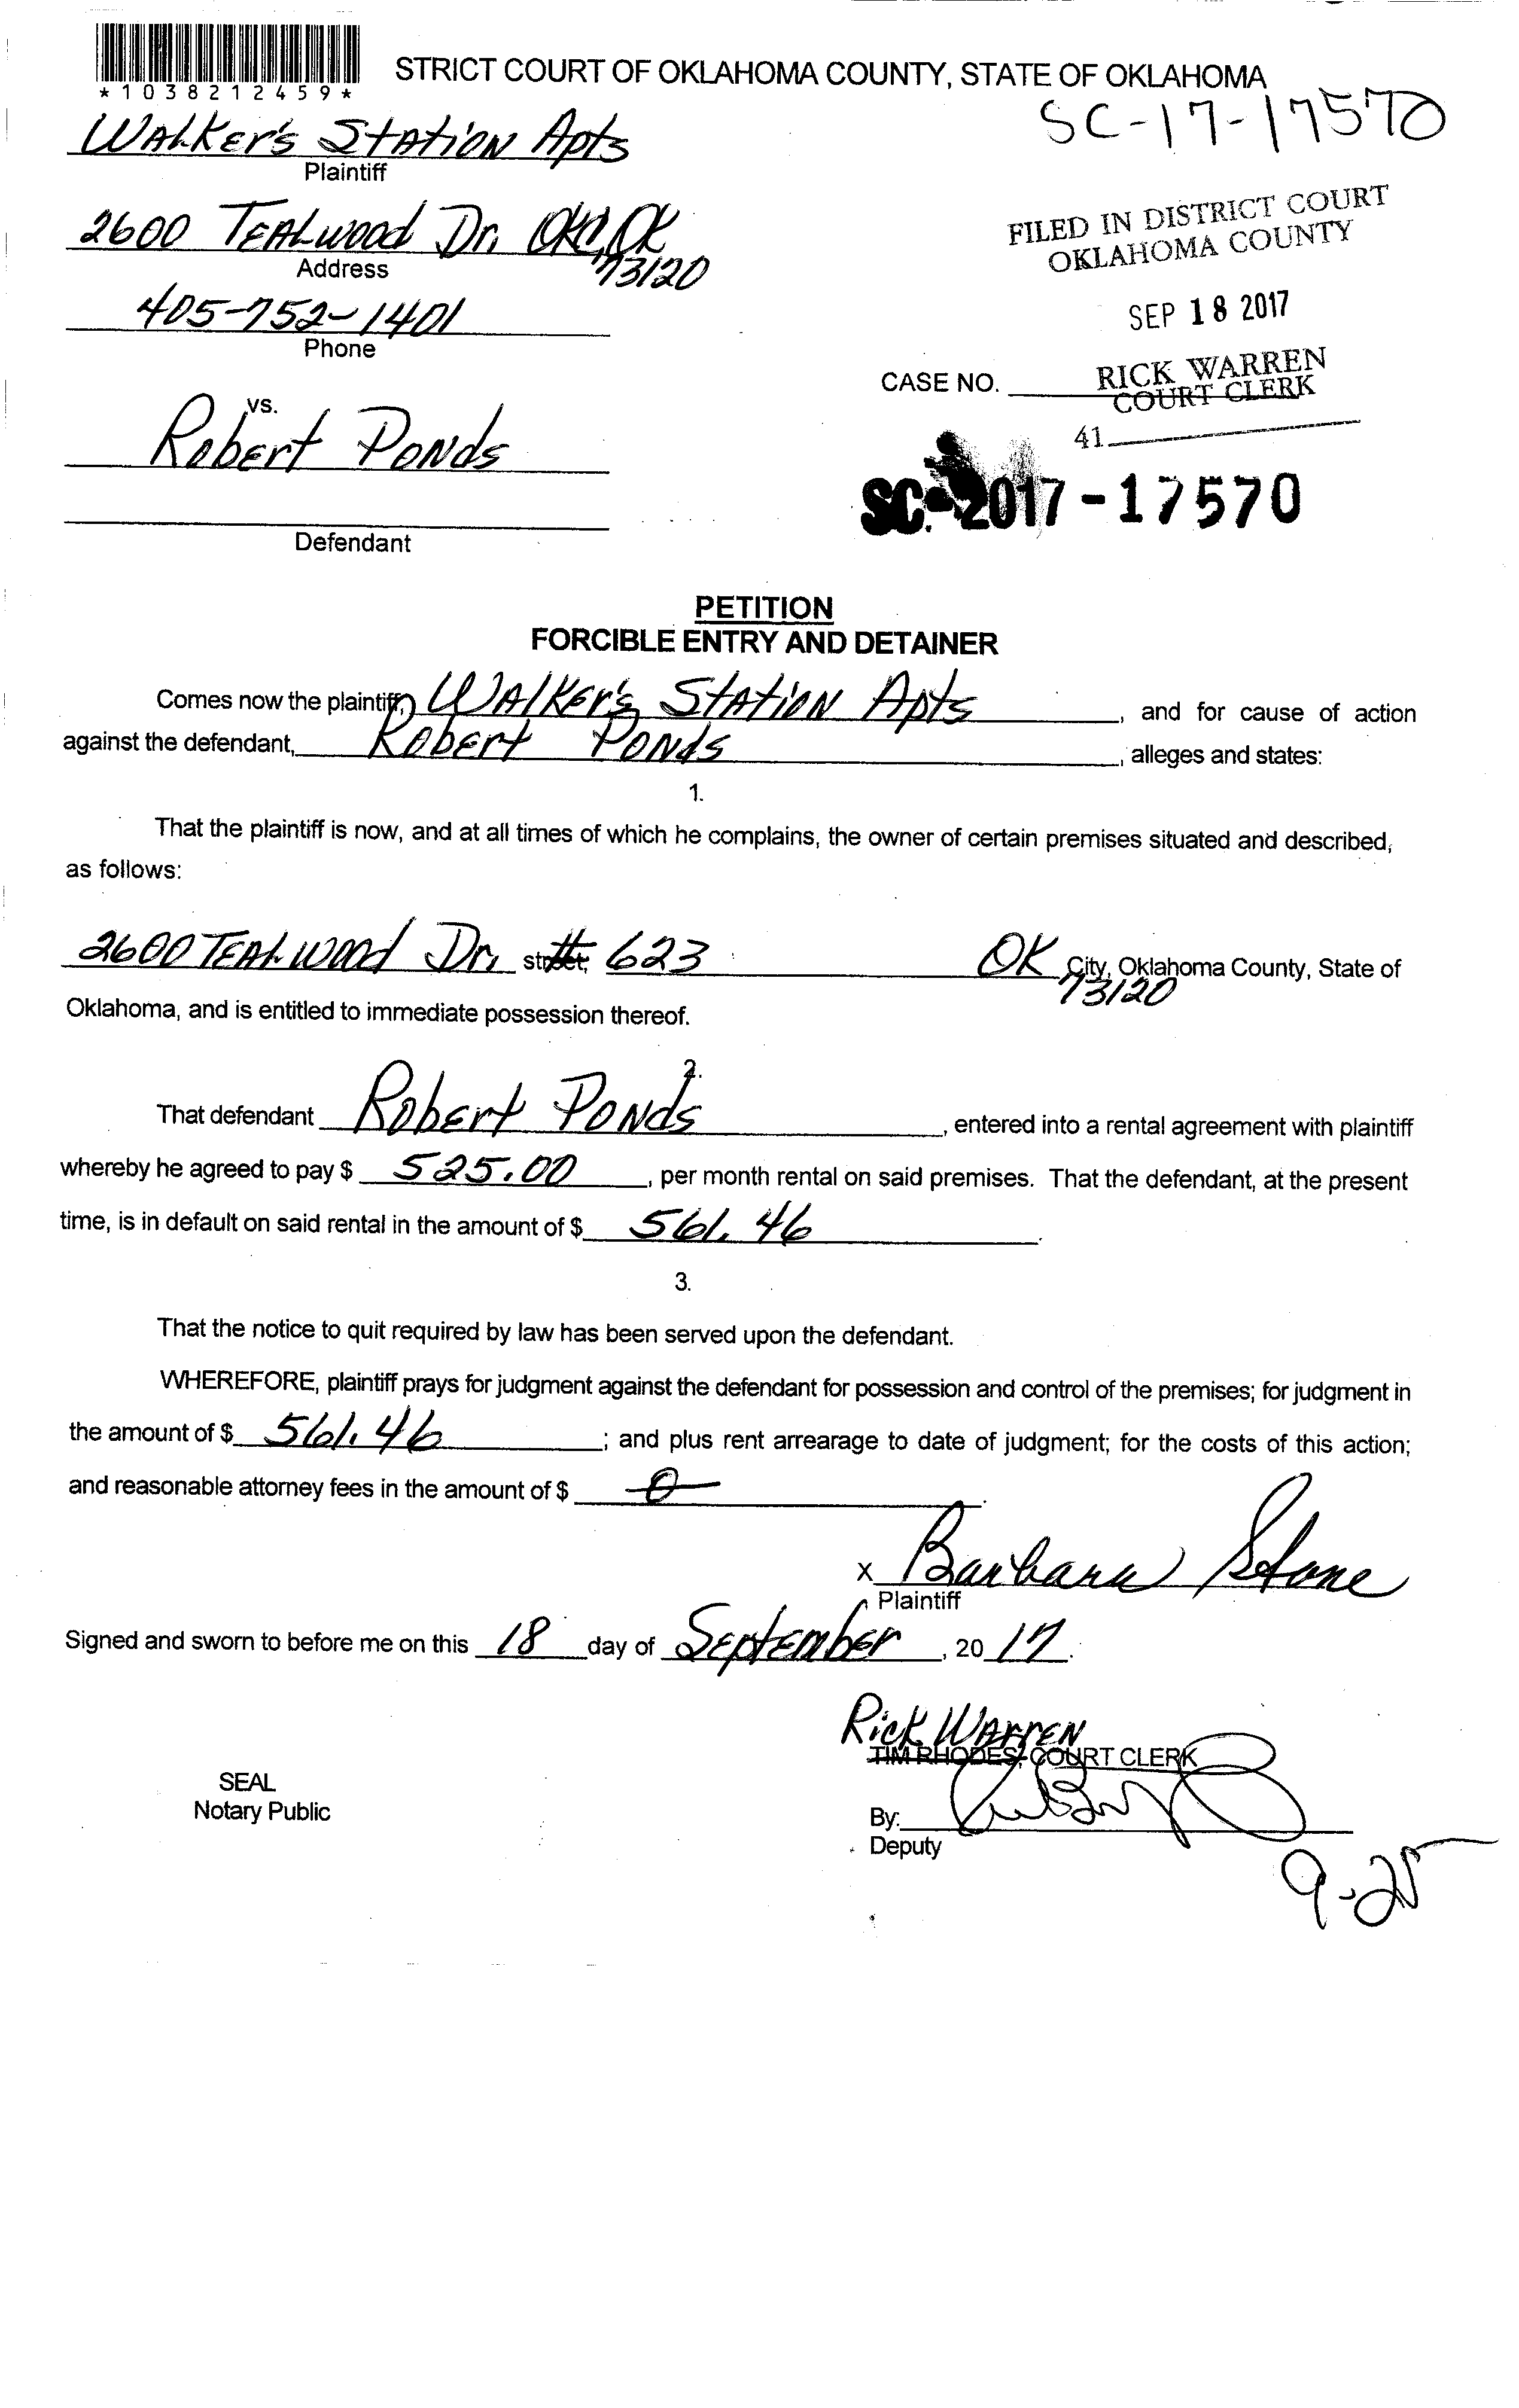 *1038212459*
STRICT COURT OF OKLAHOMA COUNTY, STATE OF OKLAHOMA
SC-17-17570
Walker's Station Apts
Plaintiff
2600 Tealwood Dr, OKC, OK
73120
Address
405-752-1401
Phone
FILED IN DISTRICT COURT
OKLAHOMA COUNTY
SEP 18 2017
RICK WARREN
COURT CLERK
CASE NO.
41
vs.
Robert Ponds
SC-2017-17570
Defendant
PETITION
FORCIBLE ENTRY AND DETAINER
Comes now the plaintiff, Walker's Station Apts, and for cause of action
against the defendant, Robert Ponds, alleges and states:
1.
That the plaintiff is now, and at all times of which he complains, the owner of certain premises situated and described,
as follows:
2600 Tealwood Dr, street, # 623 OK City, Oklahoma County, State of
73120
Oklahoma, and is entitled to immediate possession thereof.
2.
That defendant Robert Ponds, entered into a rental agreement with plaintiff
whereby he agreed to pay $ 525.00, per month rental on said premises. That the defendant, at the present
time, is in default on said rental in the amount of $ 561.46.
3.
That the notice to quit required by law has been served upon the defendant.
WHEREFORE, plaintiff prays for judgment against the defendant for possession and control of the premises; for judgment in
the amount of $ 561.46; and plus rent arrearage to date of judgment; for the costs of this action;
and reasonable attorney fees in the amount of $ 0.
x Barbara Stone
Plaintiff
Signed and sworn to before me on this 18 day of September, 20 17.
Rick Warren
TIM RHODES, COURT CLERK
SEAL
Notary Public
By:
Deputy
9-25